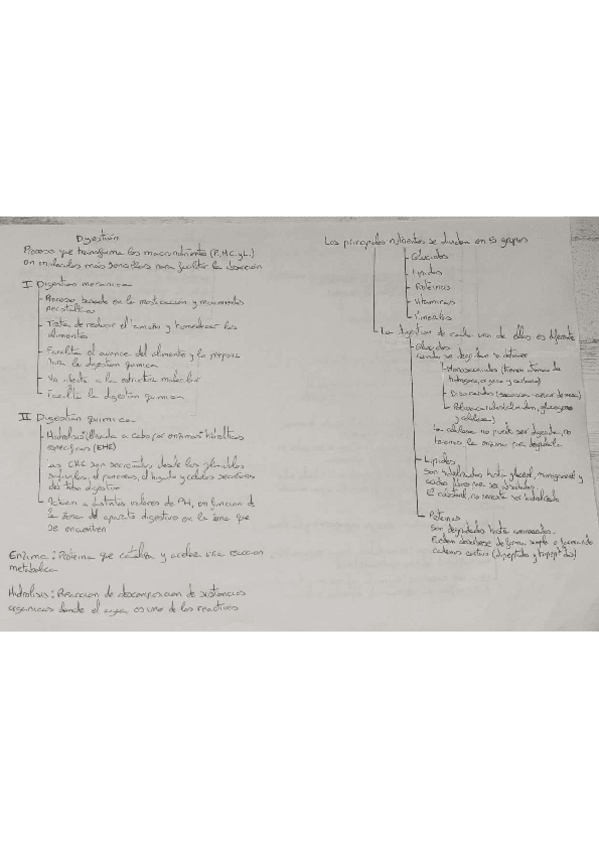 Digestión
Proceso que transforma los macronutrientes (P, H.C. y L.)
en moléculas más sencillas para facilitar la absorción
I Digestión mecánica
Proceso basado en la masticación y movimientos
peristálticos
Trata de reducir el tamaño y humedecer los
alimentos
Facilita el avance del alimento y lo prepara
para la digestión química
No afecta a la estructura molecular
Facilita la digestión química
II Digestión química
Hidrólisis llevada a cabo por enzimas hidrolíticas
específicas (EHE)
Las EHE son secretadas desde las glándulas
salivales, el páncreas, el hígado y células secretoras
del tubo digestivo
Actúan a distintos valores de PH, en función de
la zona del aparato digestivo en la que
se encuentren
Enzima: Proteína que cataliza y acelera una reacción
metabólica
Hidrólisis: Reacción de descomposición de sustancias
orgánicas donde el agua es uno de los reactivos
Los principales nutrientes se dividen en 5 grupos
Glúcidos
Lípidos
Proteínas
Vitaminas
Minerales
La digestión de cada uno de ellos es diferente
Glúcidos
cuando se degradan se obtienen
Monosacáridos (tienen átomos de
hidrógeno, oxígeno y carbono)
Disacáridos (sacarosa azúcar de mesa)
Polisacáridos (almidón, glucógeno
y celulosa)
La celulosa no puede ser digerida, no
tenemos la enzima para degradarla
Lípidos
Son hidrolizados hasta glicerol, monogliceridos y
ácidos grasos para ser absorbidos.
El colesterol, no necesita ser hidrolizado
Proteínas
Son degradadas hasta aminoácidos.
Pueden absorberse de forma simple o formando
cadenas cortas (dipéptidos y tripéptidos)